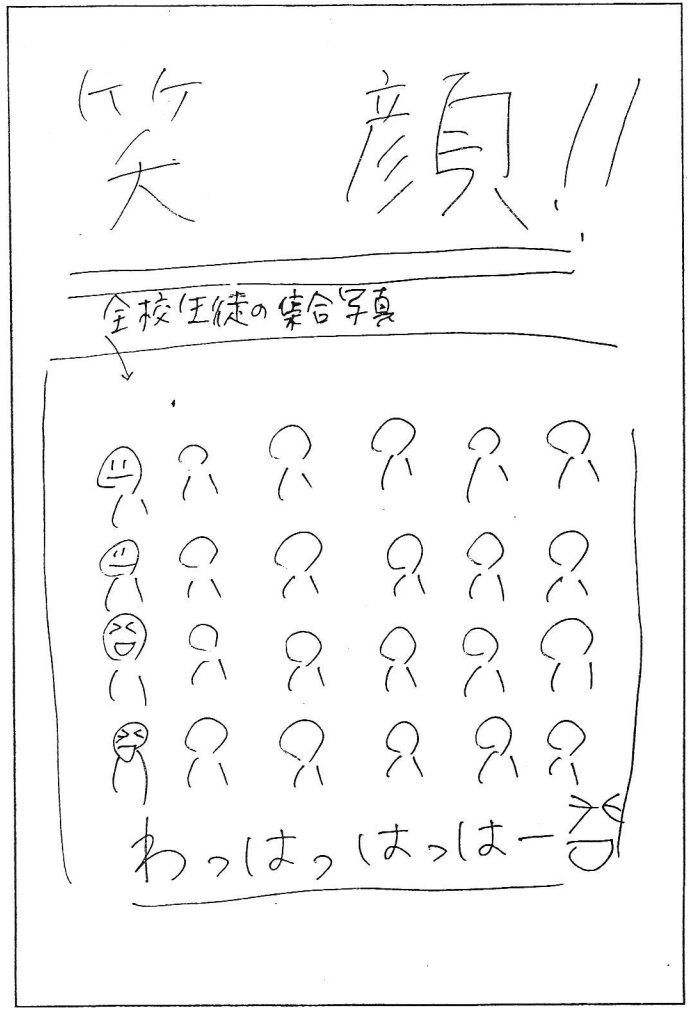 笑顔!!
全校生徒の集合写真
わっはっはっはー